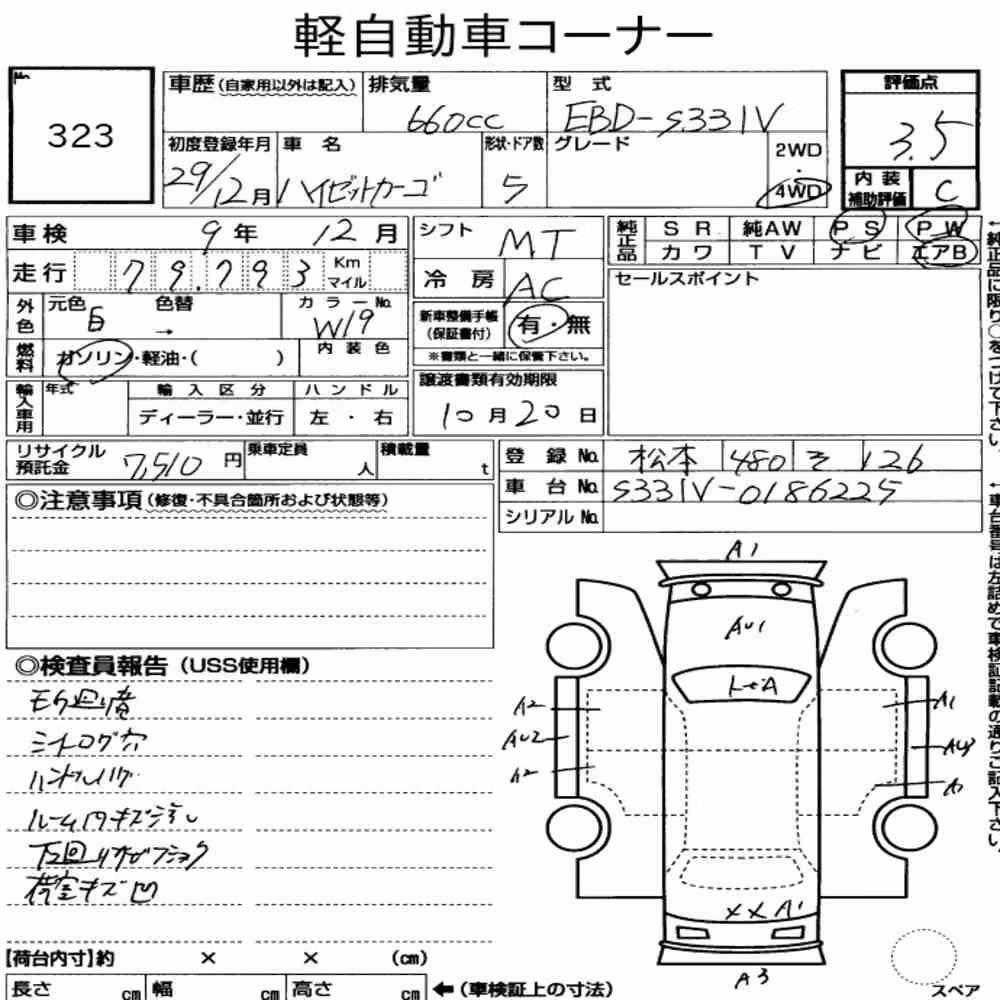 軽自動車コーナー
No.
323
車歴(自家用以外は記入)
排気量
660cc
型式
EBD-S331V
評価点
3.5
初度登録年月
29/12月
車名
ハイゼットカーゴ
形状・ドア数
5
グレード
2WD
・
4WD
内装
補助評価
C
車検 9年 12月
走行 79,793 Km
マイル
シフト
MT
冷房
AC
純正品
SR 純AW PS PW
カワ TV ナビ エアB
セールスポイント
外色
元色 白 → 色替
カラーNo.
W19
燃料
ガソリン・軽油・( )
内装色
新車整備手帳
(保証書付)
有・無
※書類と一緒に保管下さい。
輸入車用
年式
輸入区分
ディーラー・並行
ハンドル
左・右
譲渡書類有効期限
10月20日
リサイクル
預託金
7,510円
乗車定員
人
積載量
t
登録No. 松本 480 そ 126
車台No. S331V-0186225
シリアルNo.
←純正品に限り○をつけて下さい。
←車台番号は左詰めで車検証記載の通りご記入下さい。
◎注意事項(修復・不具合箇所および状態等)
◎検査員報告(USS使用欄)
シートコゲ穴
ルーム内キズ汚し
荷室キズ凹
A1
AU1
A2
AU2
A2
A1
AU3
XX A1
A3
【荷台内寸】約 × × (cm)
長さ cm 幅 cm 高さ cm ←(車検証上の寸法)
スペア